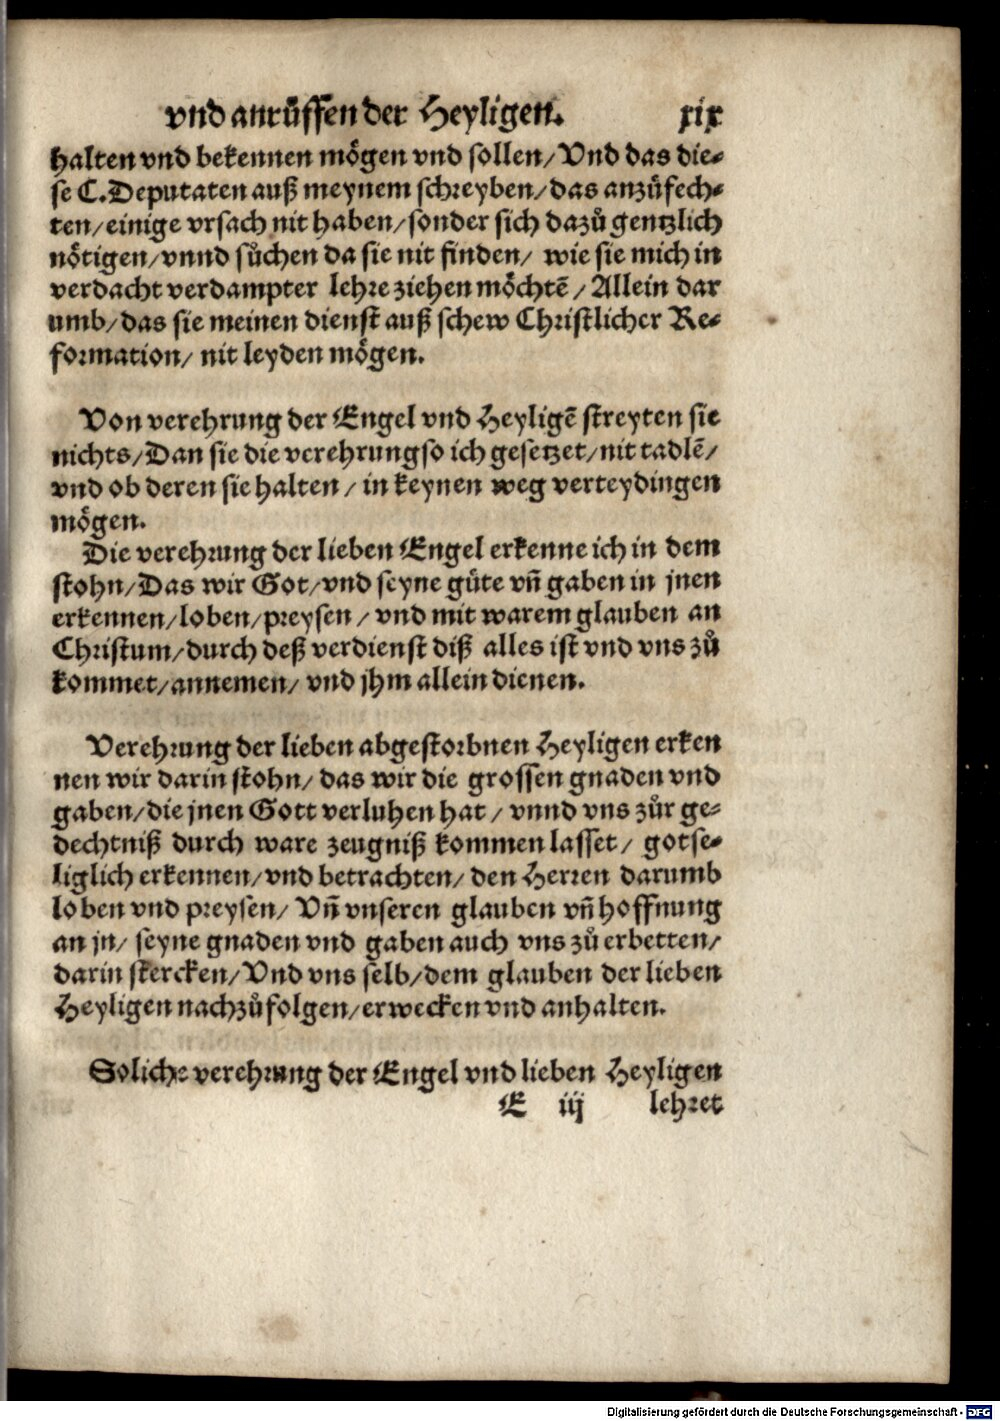 vnd anrůffen der Heyligen. xix
halten vnd bekennen mögen vnd sollen/ Vnd das die-
se C. Deputaten auß meynem schreyben/ das anzůfech-
ten/ einige vrsach nit haben/ sonder sich dazů gentzlich
nötigen/ vnnd sůchen da sie nit finden/ wie sie mich in
verdacht verdampter lehre ziehen möchtē/ Allein dar
umb/ das sie meinen dienst auß schew Christlicher Re-
formation/ nit leyden mögen.
Von verehrung der Engel vnd Heyligē streyten sie
nichts/ Dan sie die verehrung so ich gesetzet/ nit tadlē/
vnd ob deren sie halten/ in keynen weg verteydingen
mögen.
Die verehrung der lieben Engel erkenne ich in dem
stohn/ Das wir Got/ vnd seyne güte vñ gaben in jnen
erkennen/ loben/ preysen/ vnd mit warem glauben an
Christum/ durch deß verdienst diß alles ist vnd vns zů
kommet/ annemen/ vnd jhm allein dienen.
Verehrung der lieben abgestorbnen Heyligen erken
nen wir darin stohn/ das wir die grossen gnaden vnd
gaben/ die jnen Gott verluhen hat/ vnnd vns zůr ge-
dechtniß durch ware zeugniß kommen lasset/ gotse-
liglich erkennen/ vnd betrachten/ den Herren darumb
loben vnd preysen/ Vñ vnseren glauben vñ hoffnung
an jn/ seyne gnaden vnd gaben auch vns zů erbetten/
darin stercken/ Vnd vns selb/ dem glauben der lieben
Heyligen nachzůfolgen/ erwecken vnd anhalten.
Soliche verehrung der Engel vnd lieben Heyligen
E iij lehret
Digitalisierung gefördert durch die Deutsche Forschungsgemeinschaft - DFG